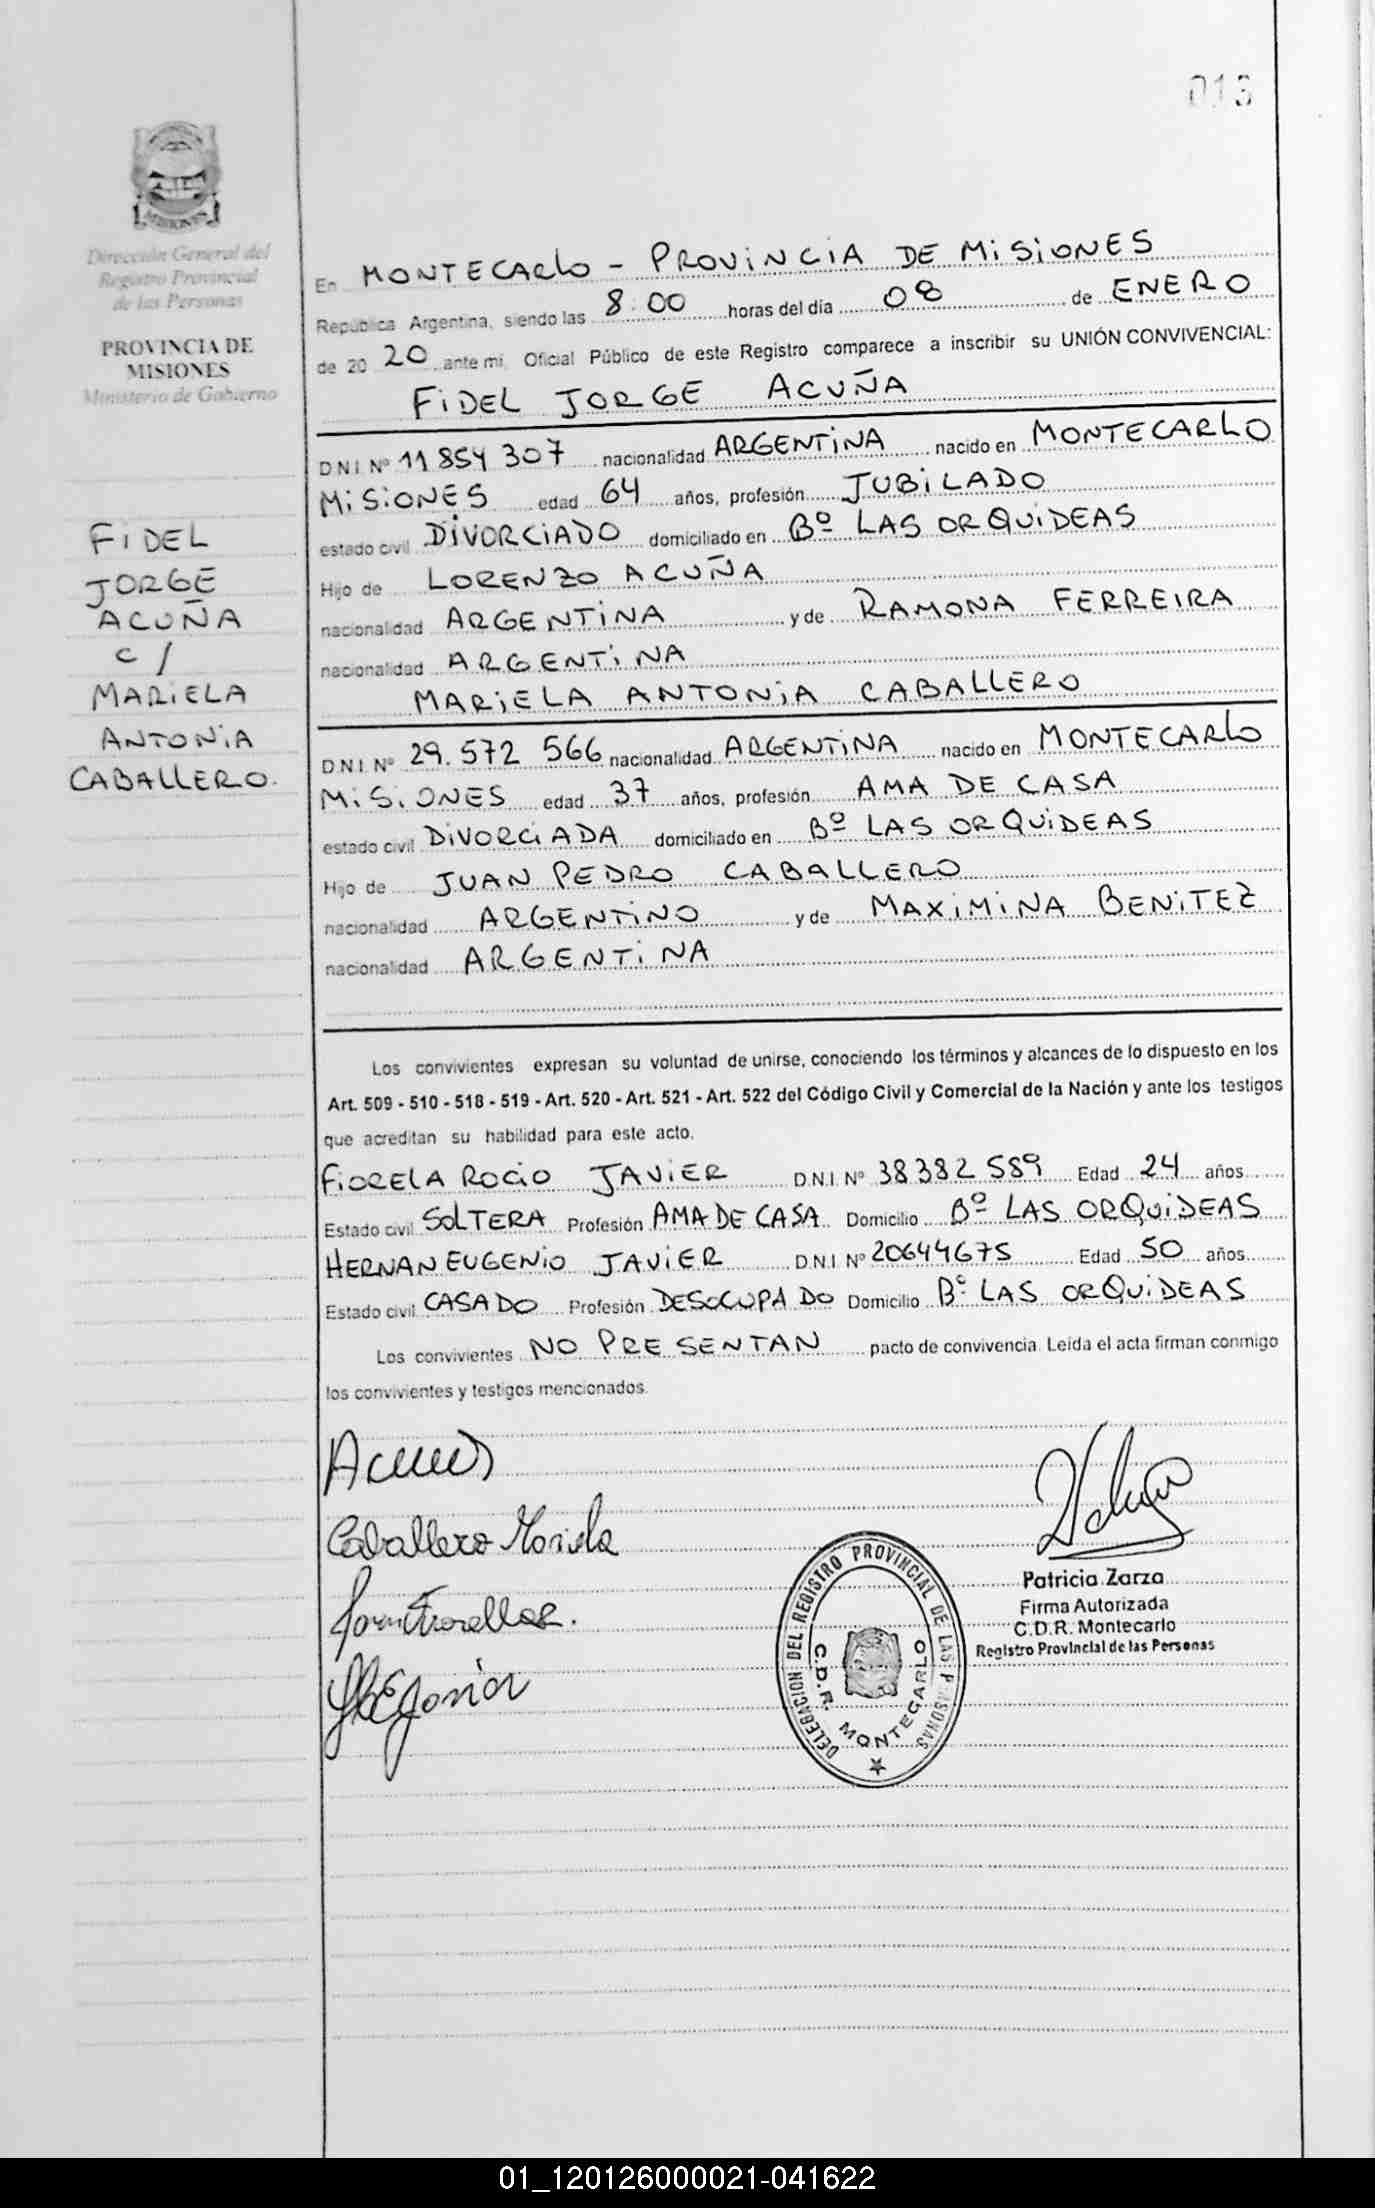 013
MISIONES
Dirección General del
Registro Provincial
de las Personas
PROVINCIA DE
MISIONES
Ministerio de Gobierno
FIDEL
JORGE
ACUÑA
C/
MARIELA
ANTONIA
CABALLERO.
En MONTECARLO - PROVINCIA DE MISIONES
República Argentina, siendo las 8:00 horas del día 08 de ENERO
de 20 20 ante mi, Oficial Público de este Registro comparece a inscribir su UNIÓN CONVIVENCIAL:
FIDEL JORGE ACUÑA
D.N.I. Nº 11 854 307 nacionalidad ARGENTINA nacido en MONTECARLO
MISIONES edad 64 años, profesión JUBILADO
estado civil DIVORCIADO domiciliado en Bº LAS ORQUIDEAS
Hijo de LORENZO ACUÑA
nacionalidad ARGENTINA y de RAMONA FERREIRA
nacionalidad ARGENTINA
MARIELA ANTONIA CABALLERO
D.N.I. Nº 29.572 566 nacionalidad ARGENTINA nacido en MONTECARLO
MISIONES edad 37 años, profesión AMA DE CASA
estado civil DIVORCIADA domiciliado en Bº LAS ORQUIDEAS
Hijo de JUAN PEDRO CABALLERO
nacionalidad ARGENTINO y de MAXIMINA BENITEZ
nacionalidad ARGENTINA
Los convivientes expresan su voluntad de unirse, conociendo los términos y alcances de lo dispuesto en los
Art. 509 - 510 - 518 - 519 - Art. 520 - Art. 521 - Art. 522 del Código Civil y Comercial de la Nación y ante los testigos
que acreditan su habilidad para este acto.
FIORELA ROCIO JAVIER D.N.I. Nº 38382589 Edad 24 años
Estado civil SOLTERA Profesión AMA DE CASA Domicilio Bº LAS ORQUIDEAS
HERNAN EUGENIO JAVIER D.N.I Nº 20644675 Edad 50 años
Estado civil CASADO Profesión DESOCUPADO Domicilio Bº LAS ORQUIDEAS
Los convivientes NO PRESENTAN pacto de convivencia. Leída el acta firman conmigo
los convivientes y testigos mencionados.
Caballero Mariela
Patricia Zarza
Firma Autorizada
C.D.R. Montecarlo
Registro Provincial de las Personas
DELEGACION DEL REGISTRO PROVINCIAL DE LAS PERSONAS
C.D.R. MONTECARLO
01_120126000021-041622